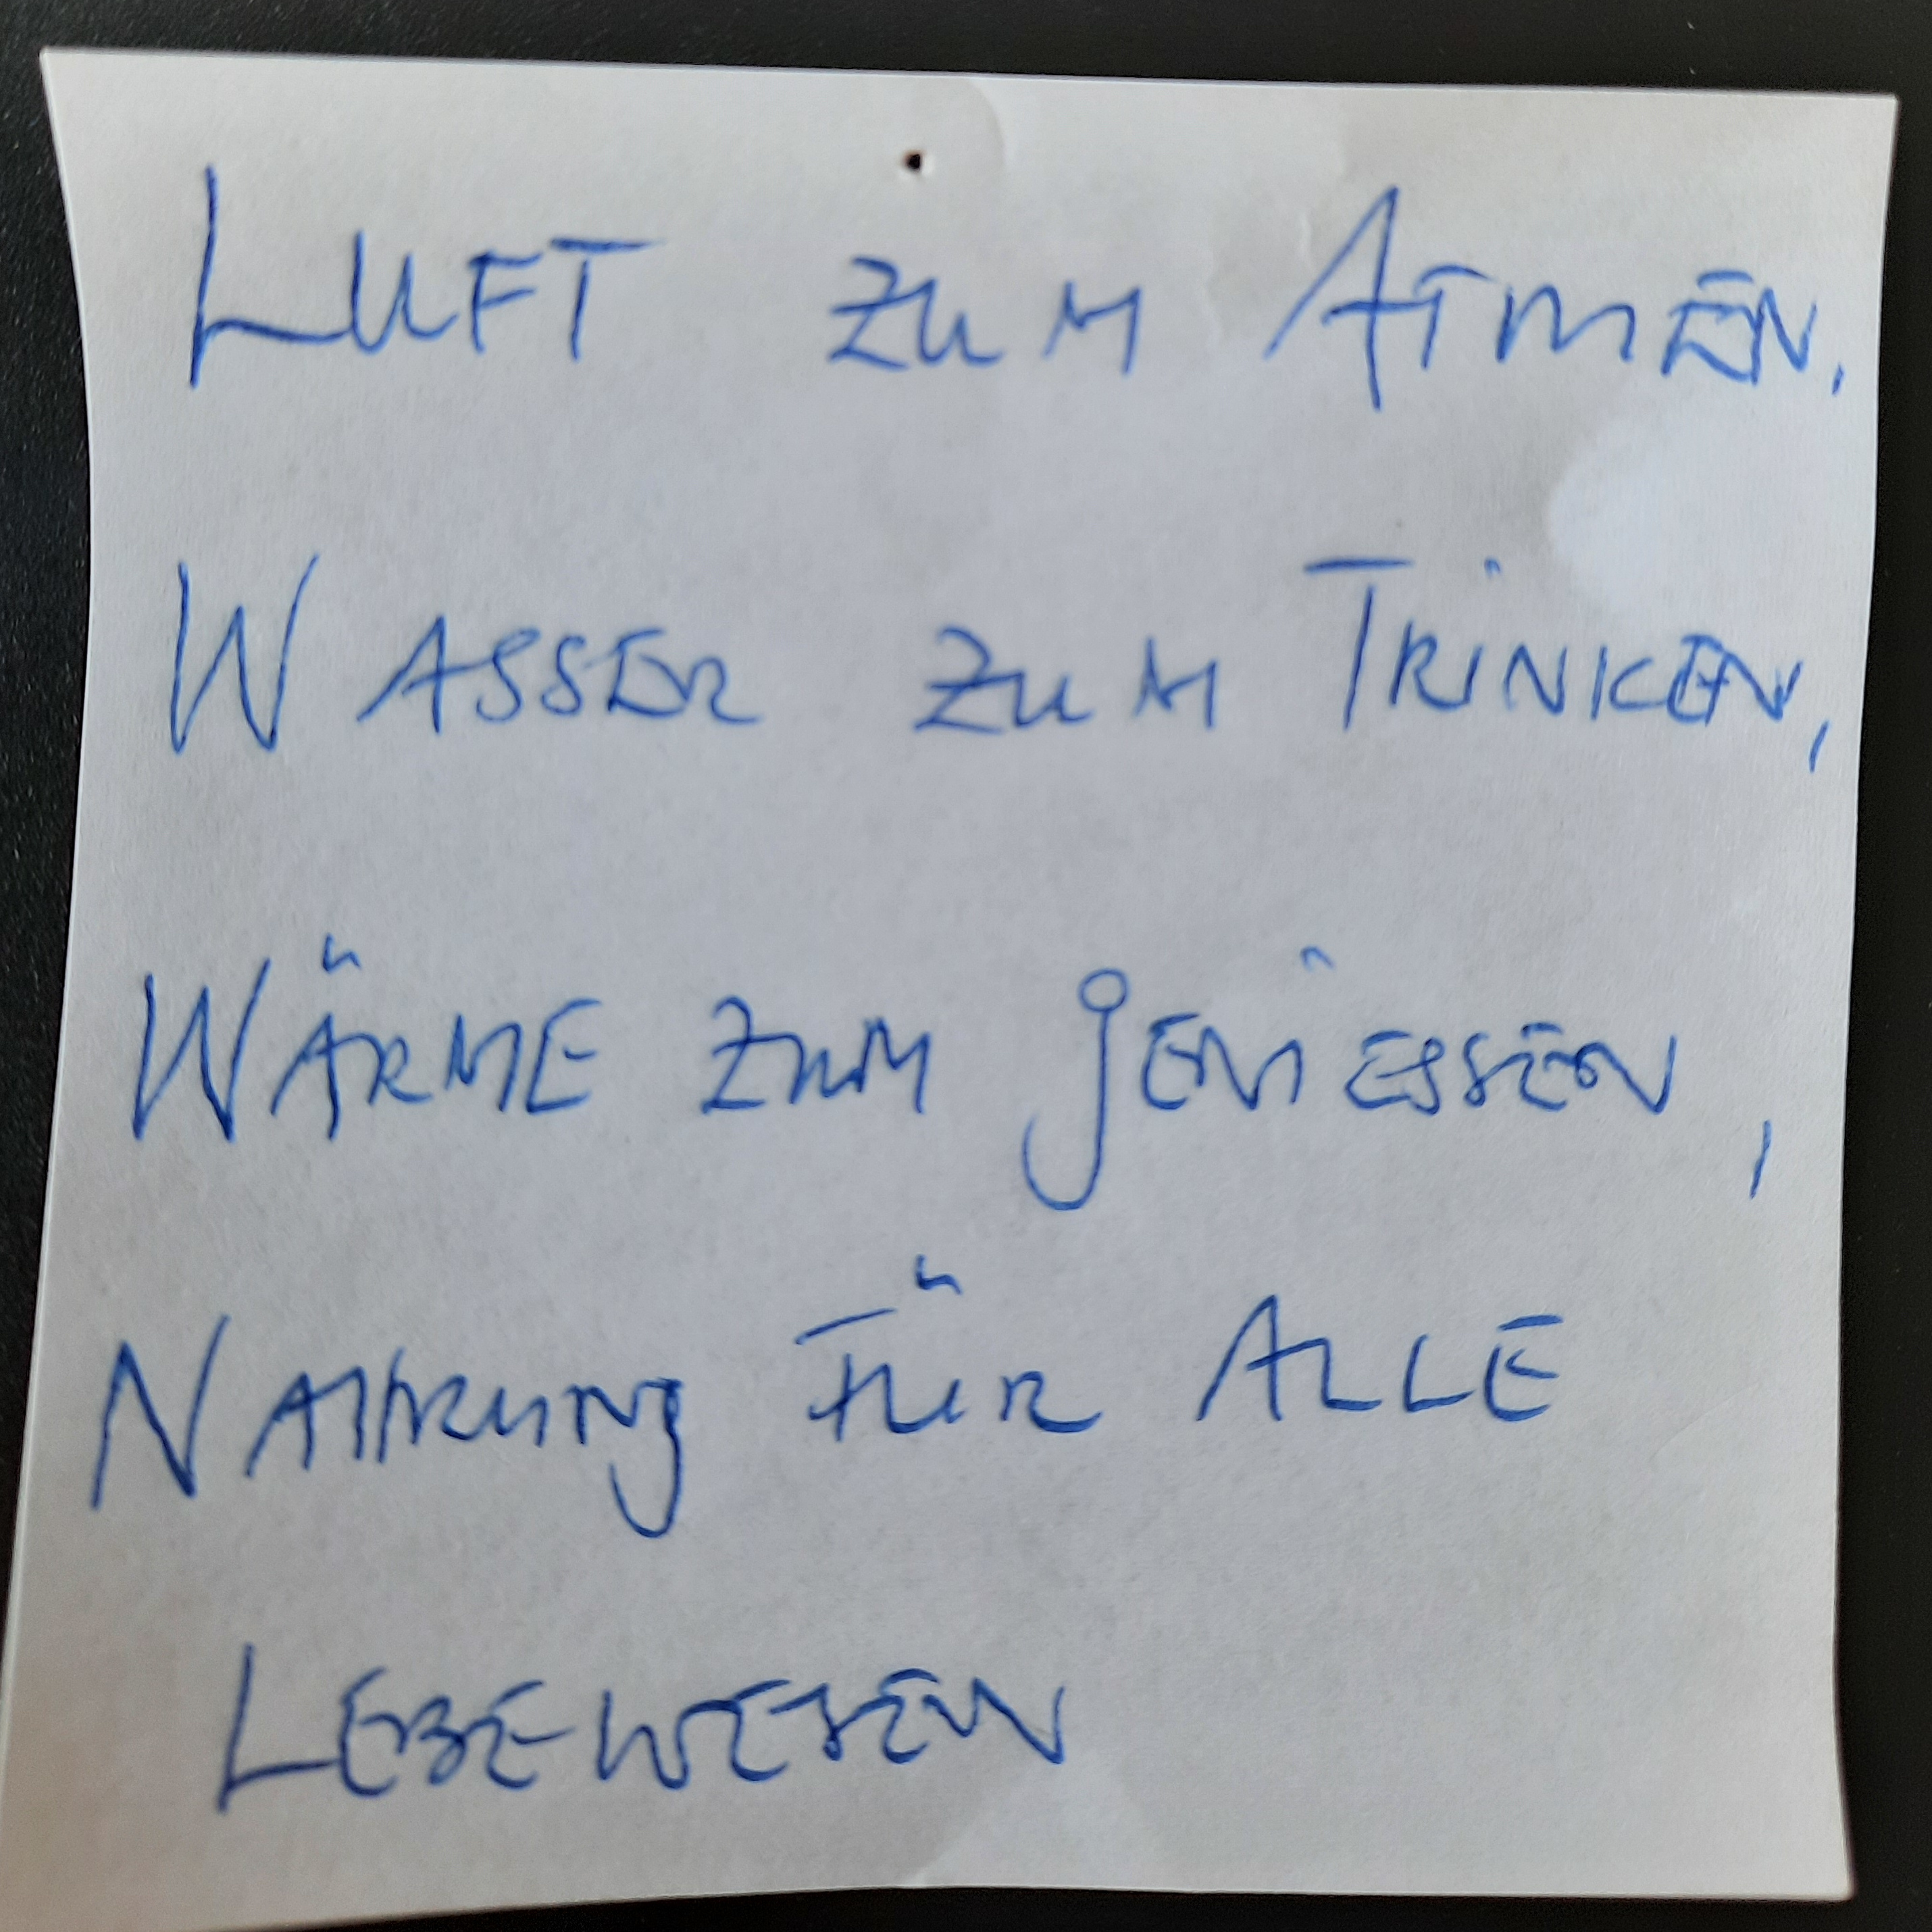 LUFT ZUM ATMEN,
WASSER ZUM TRINKEN,
WÄRME ZUM GENIESSEN,
NAHRUNG FÜR ALLE
LEBEWESEN